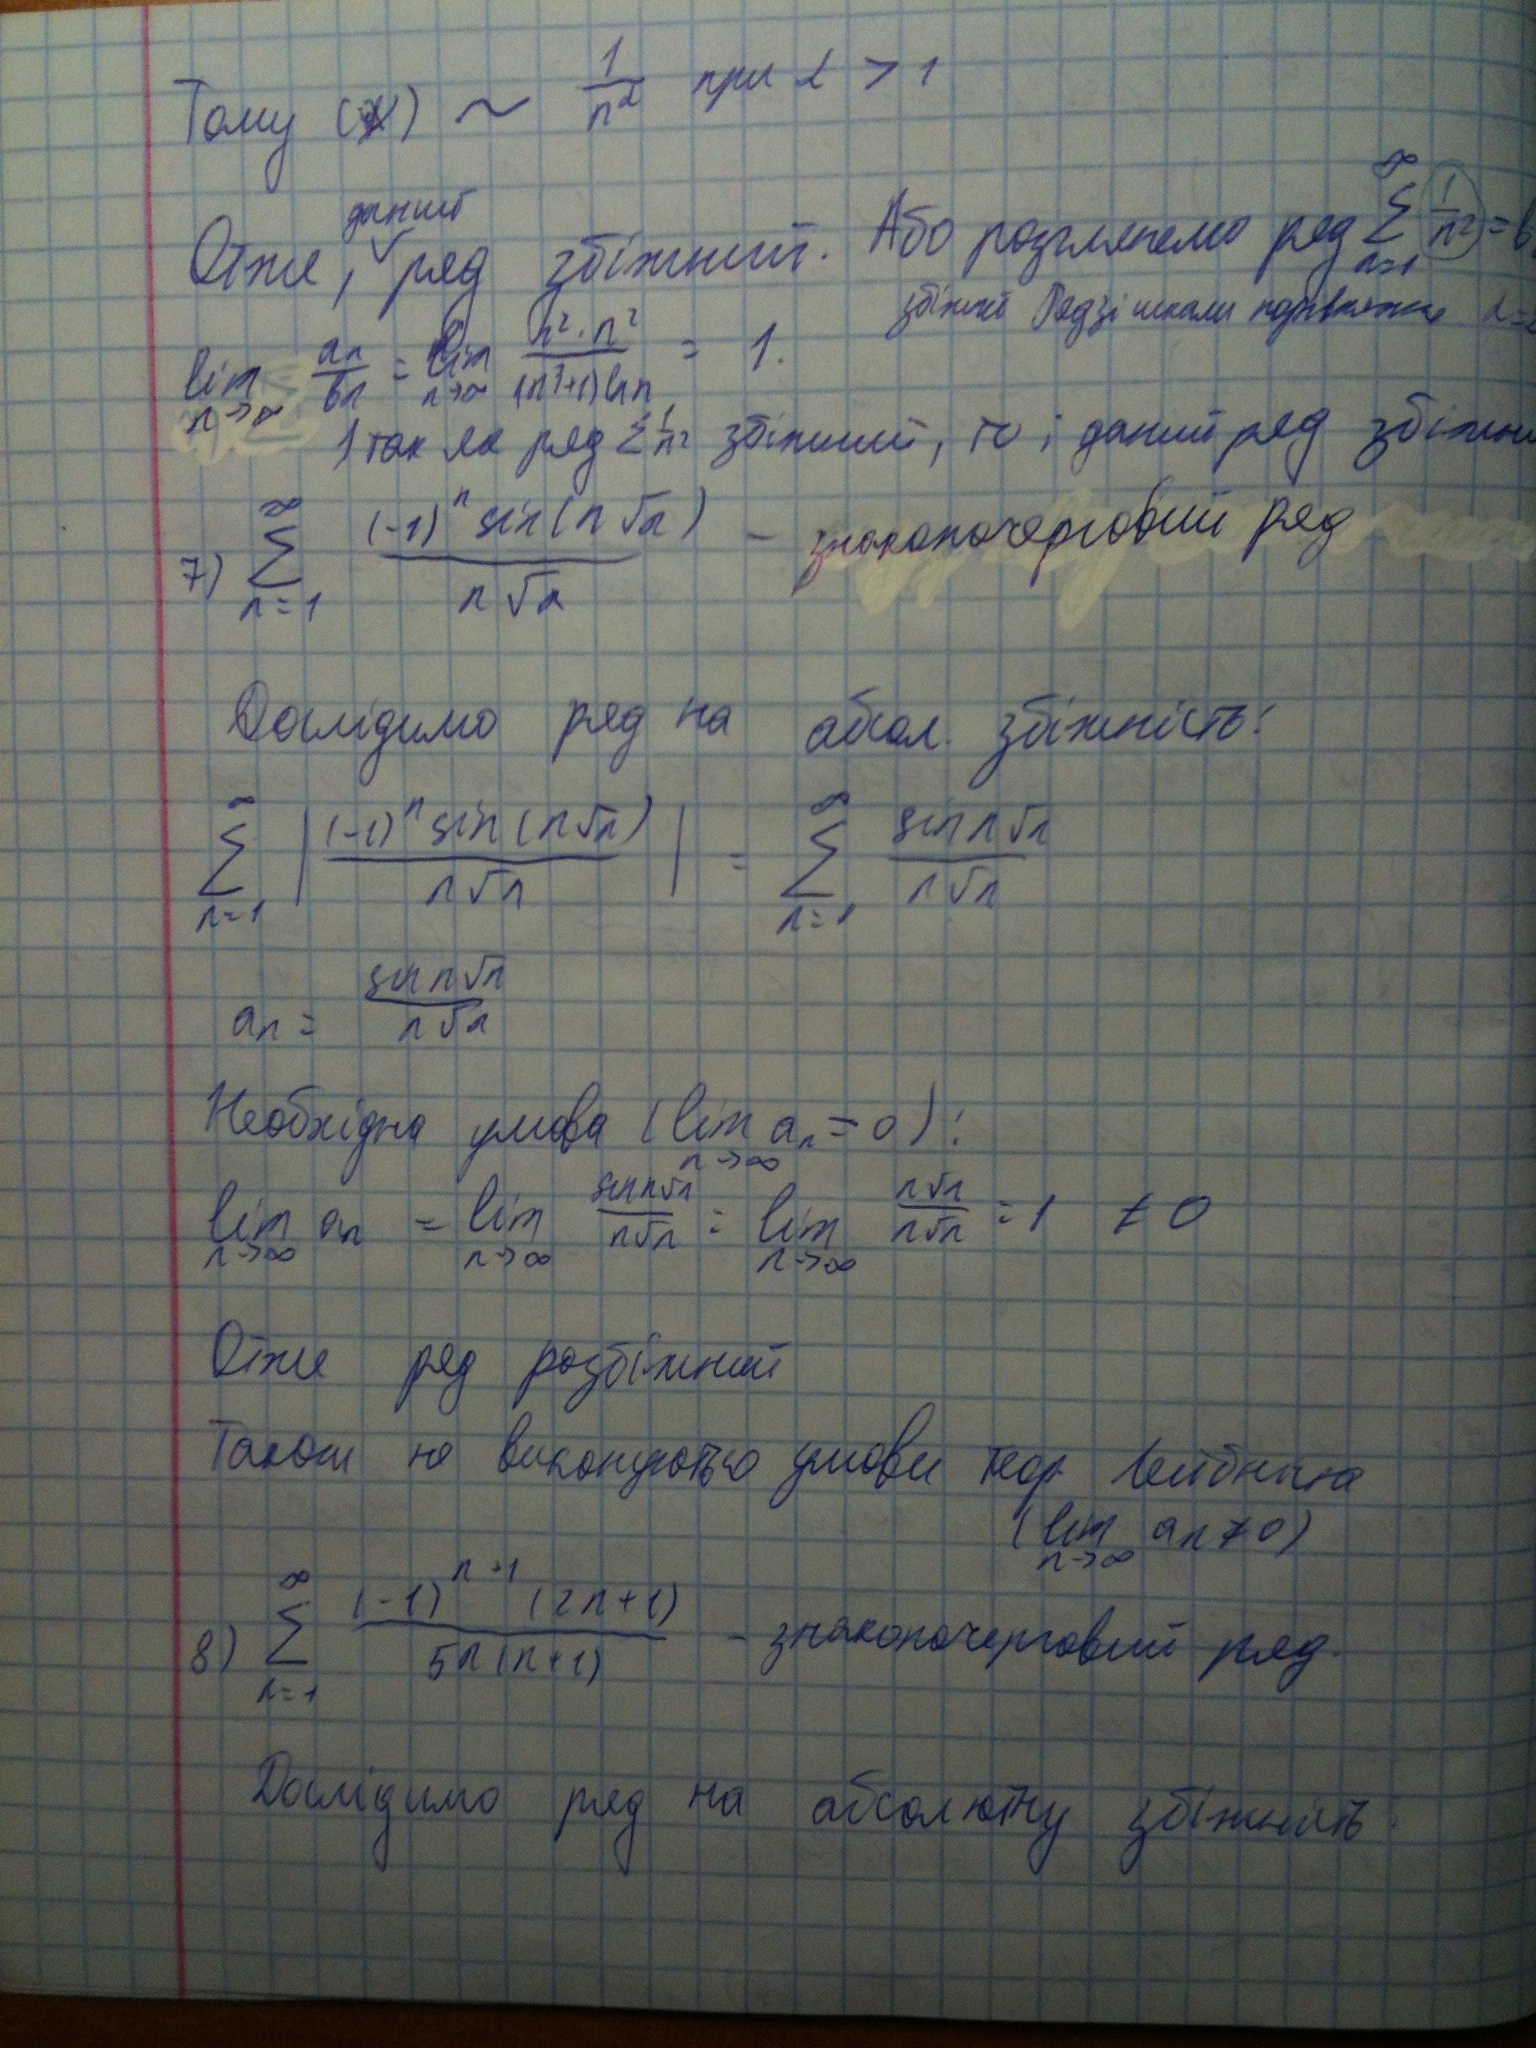 Тому (*) ~ 1/n^α при α > 1
Отже, даний ряд збіжний. Або розглянемо ряд ∑_{n=1}^∞ 1/n² = b
збіжний
lim_{n→∞} a_n/b_n = lim_{n→∞} n²·n²/((n³+1) ln n) = 1.
і так як ряд ∑ 1/n² збіжний, то і даний ряд збіжни
7) ∑_{n=1}^∞ (-1)^n sin(n√n) / n√n - знакопочерговий ряд
Дослідимо ряд на абсол. збіжність:
∑_{n=1}^∞ |(-1)^n sin(n√n) / n√n| = ∑_{n=1}^∞ sin n√n / n√n
a_n = sin n√n / n√n
Необхідна умова (lim_{n→∞} a_n = 0):
lim_{n→∞} a_n = lim_{n→∞} sin n√n / n√n = lim_{n→∞} n√n / n√n = 1 ≠ 0
Отже ряд розбіжний
Також не виконуються умови теор. Лейбніца
(lim_{n→∞} a_n ≠ 0)
8) ∑_{n=1}^∞ (-1)^{n-1} (2n+1) / 5n(n+1) - знакопочерговий ряд.
Дослідимо ряд на абсолютну збіжність.